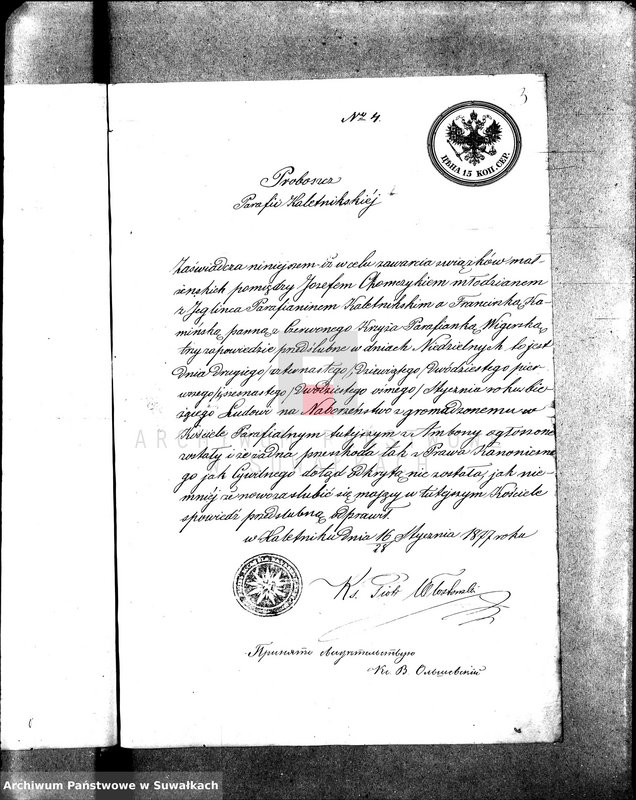 3
№ 4.
ЦѢНА 15 КОП. СЕР.
Proboszcz
Parafii Kaletnikskiéj
Zaświadcza niniejszem iż w celu zawarcia związków mał-
żeńskich pomiędzy Jozefem Chomczykiem młodzianem
z Jeglinca Parafianinem Kaletnikskim a Franciszką Ka-
mińską panną z Czerwonego Krzyża Parafianką Wigerską
trzy zapowiedzie przedślubne w dniach Niedzielnych to jest
Dnia Drugiego / czternastego / Dziewiątego / Dwódziestego pier-
wszego / szesnastego / Dwódziestego osmego / Stycznia roku bie-
żącego Ludowi na Nabożeństwo zgromadzonemu w
Kościele Parafialnym tutejszym z Ambony ogłoszone
zostały i że żadna przeszkoda tak z Prawa Kanoniczne-
go jak Cywilnego dotąd odkrytą nie została, jak nie-
mniéj że nowozaślubić się mający w tutejszym Kościele
spowiedź przedślubną odprawił.
w Kaletniku dnia 16/28 Stycznia 1877 roku
Ks. Piotr
Принято
Кс. В. Ольшевскій
ARCHIWUM PAŃSTWOWE
Archiwum Państwowe w Suwałkach